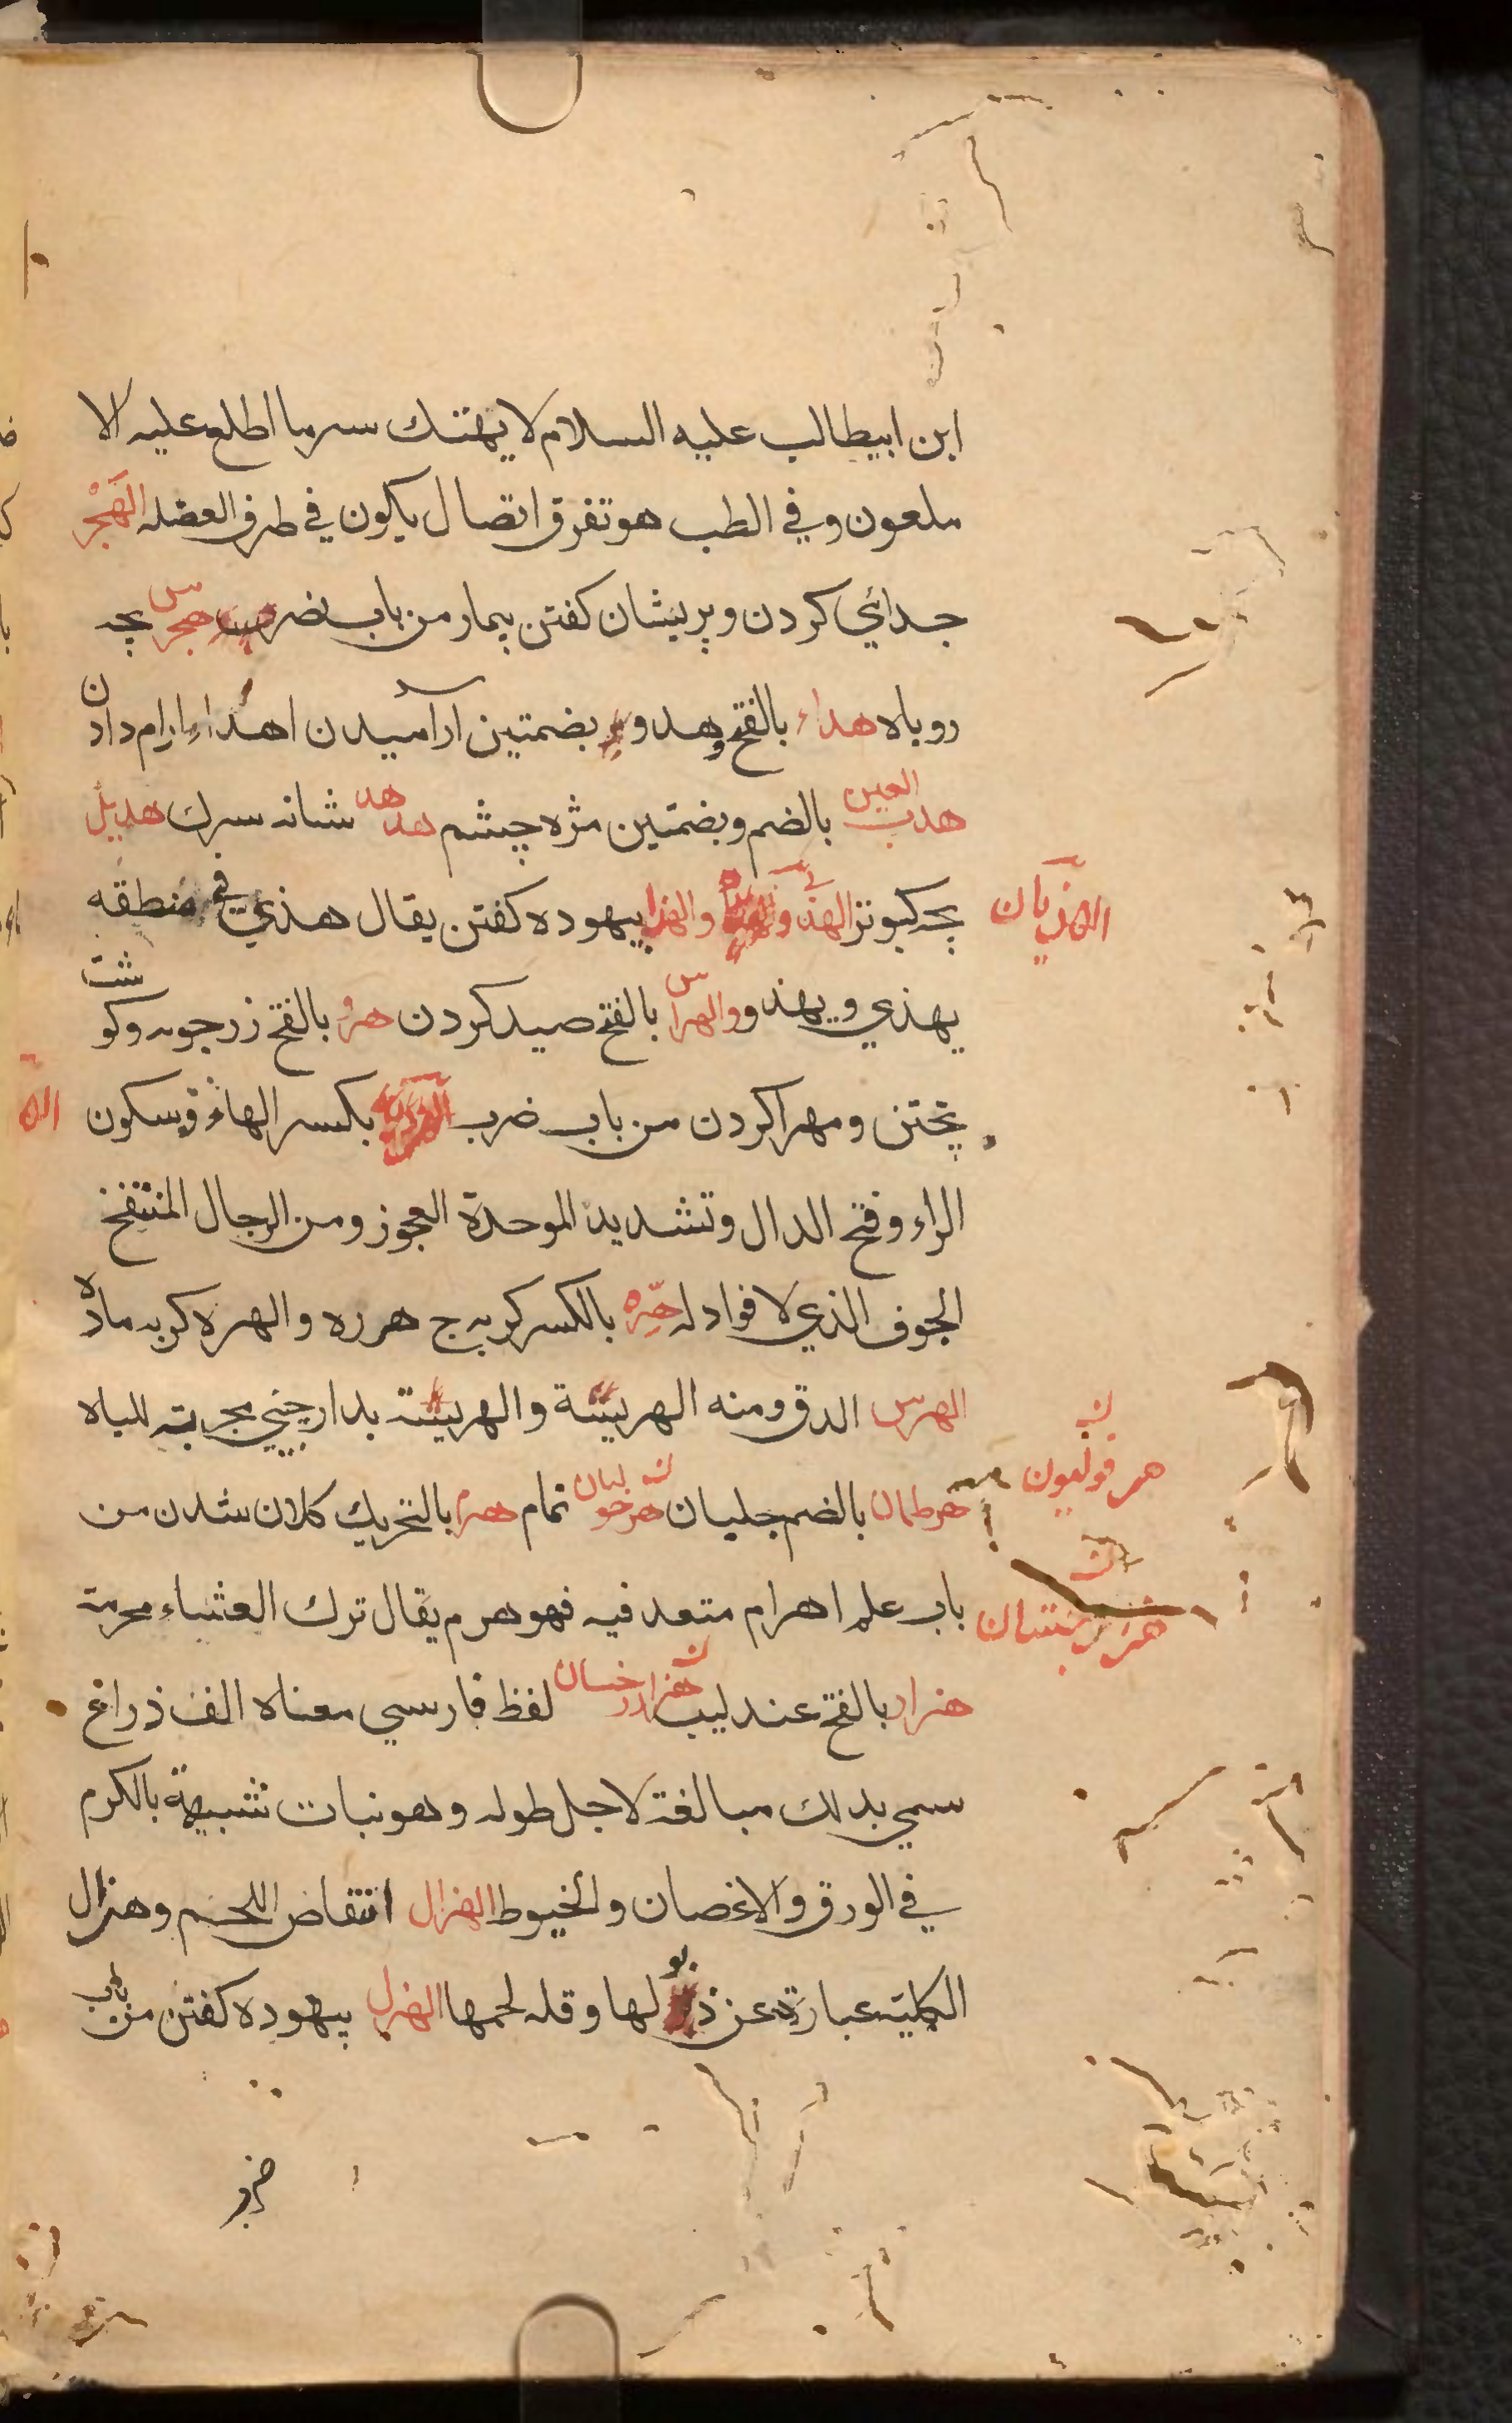 ابن ابيطالب عليه السلام لا يهتك سر ما اطلع عليه الا
ملعون وفي الطب هو تفرق اتصال يكون في طرف العضله الهَجْر
جدائي كردن و پريشان كفتن بيمار من باب نصر هجرس بچه
روباه هداء بالفتح وهدوء بضمتين آراميدن اهداء ارام دادن
هدب العين بالضم وبضمتين مژه چشم هدهد شانه سرك هديل
بچه كبوتر الهذي والهذا بيهوده كفتن يقال هذي في منطقه
الهذيان
يهذي و يهذو والهراس بالفتح صيد كردن هرؤ بالفتح زرجوبه وكوشت
پختن و مهرا كردن من باب ضرب بكسر الهاء وسكون
الراء وفتح الدال وتشديد الموحدة العجوز ومن الرجال المنتفخ
الجوف الذي لا فواد له هِرّه بالكسر كربه ج هرره والهره كربه ماده
الهرس الدق ومنه الهريسة والهريسة بدارچيني مجربته للباه
هرفوليون
هرطمان بالضم جلبان هرخوليان نمام هرم بالتحريك كلان شدن من
باب علم اهرام متعد فيه فهو هرم يقال ترك العشاء مهرمة
هنر بستان
هزار بالفتح عندليب هزارخسان لفظ فارسي معناه الف ذراع
سمي بدلك مبالغة لاجل طوله وهو نبات شبيهة بالكرم
في الورق والاغصان والخيوط الهزال انتقاص اللحم وهزال
الكلية عبارة عن ذبولها وقله لحمها الهزل بيهوده كفتن من باب
ضرب